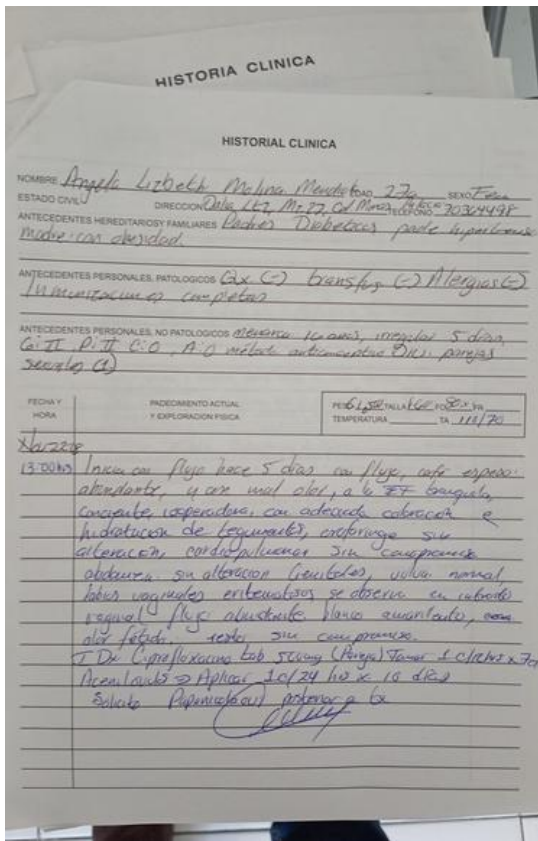 HISTORIA CLINICA
HISTORIAL CLINICA
NOMBRE Angela Lizbeth Molina EDAD 27a SEXO Fem
ESTADO CIVIL DIRECCION Dalia Lt 7, Mz 27, Col TELEFONO 70364498
ANTECEDENTES HEREDITARIOS Y FAMILIARES Padres Diabeticos padre hipertenso
madre con obesidad.
ANTECEDENTES PERSONALES, PATOLOGICOS Qx (-) transfus (-) Alergias (-)
Inmunizaciones completas
ANTECEDENTES PERSONALES, NO PATOLOGICOS menarca 16 años, irregular 5 dias,
G: II P: II C: O, A: O método anticonceptivo DIU. parejas
sexuales (1)
FECHA Y HORA
PADECIMIENTO ACTUAL Y EXPLORACION FISICA
PESO 61,500 TALLA FC 80x
TEMPERATURA TA 110/70
13:00hrs Inicia con flujo hace 5 dias con flujo, café espeso
abundante, y con mal olor, a la EF tranquila,
conciente, cooperadora, con adecuada coloración e
hidratacion de tegumentos, orofaringe sin
alteracion, cardiopulmonar sin compromiso
abdomen sin alteracion Genitales, vulva normal,
labios vaginales eritematosos se observa en introito
vaginal flujo abundante blanco amarillento, con
olor fétido. resto sin compromiso.
I Dx Ciprofloxacino tab 500mg (Pareja) Tomar 1 c/12hrs x 7d
Aplicar 1c/24 hrs x 10 dias
Solicito Papanicolaou posterior a tx